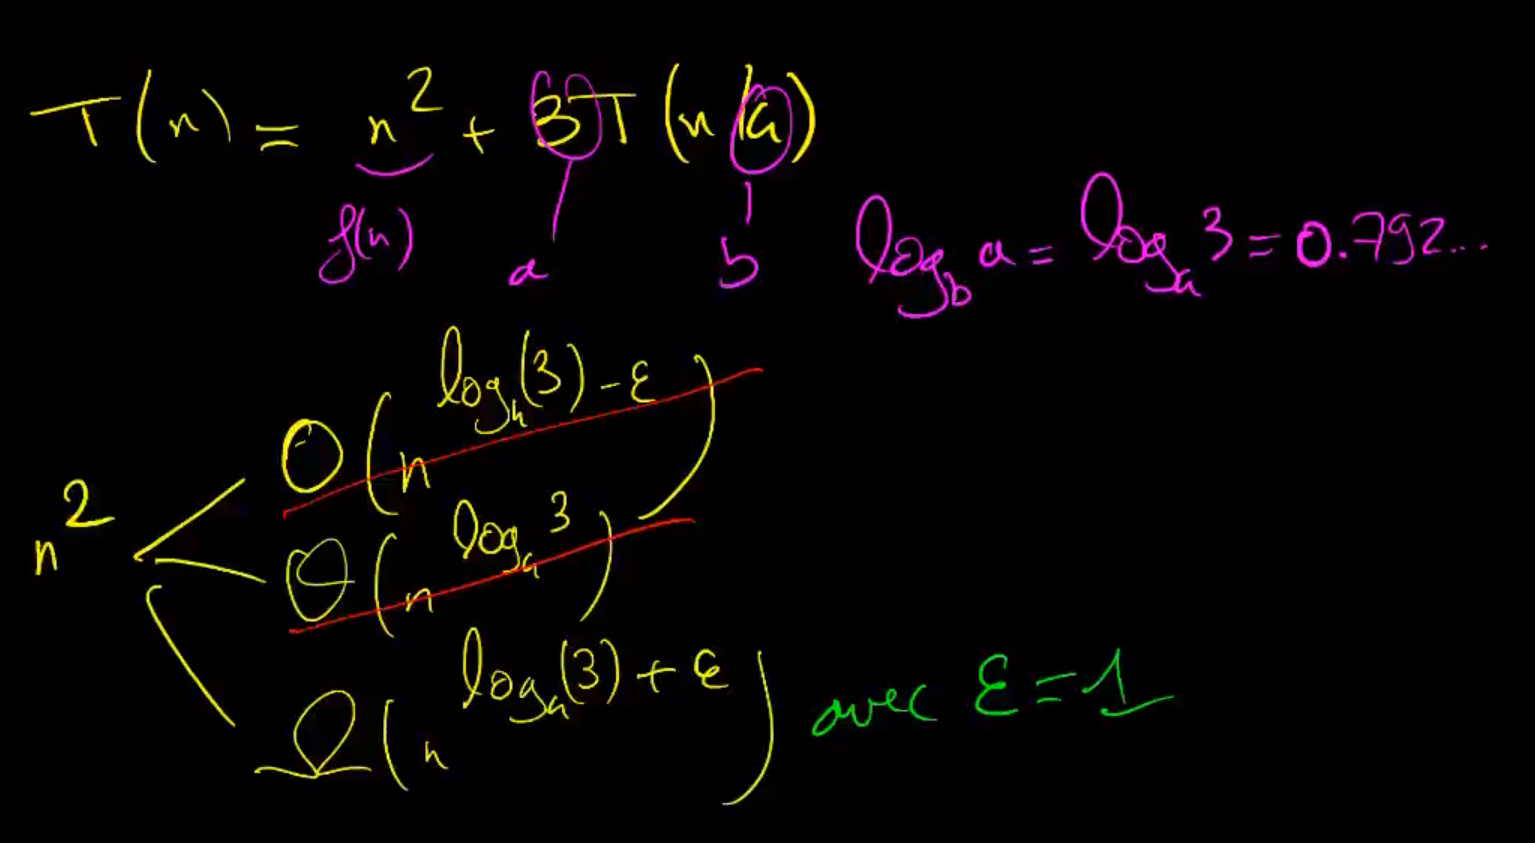 T(n) = n² + 3T(n/4)
f(n) a b
log_b a = log_4 3 = 0.792...
O(n^(log_4(3) - ε))
n²
Θ(n^(log_4 3))
Ω(n^(log_4(3) + ε)) avec ε = 1